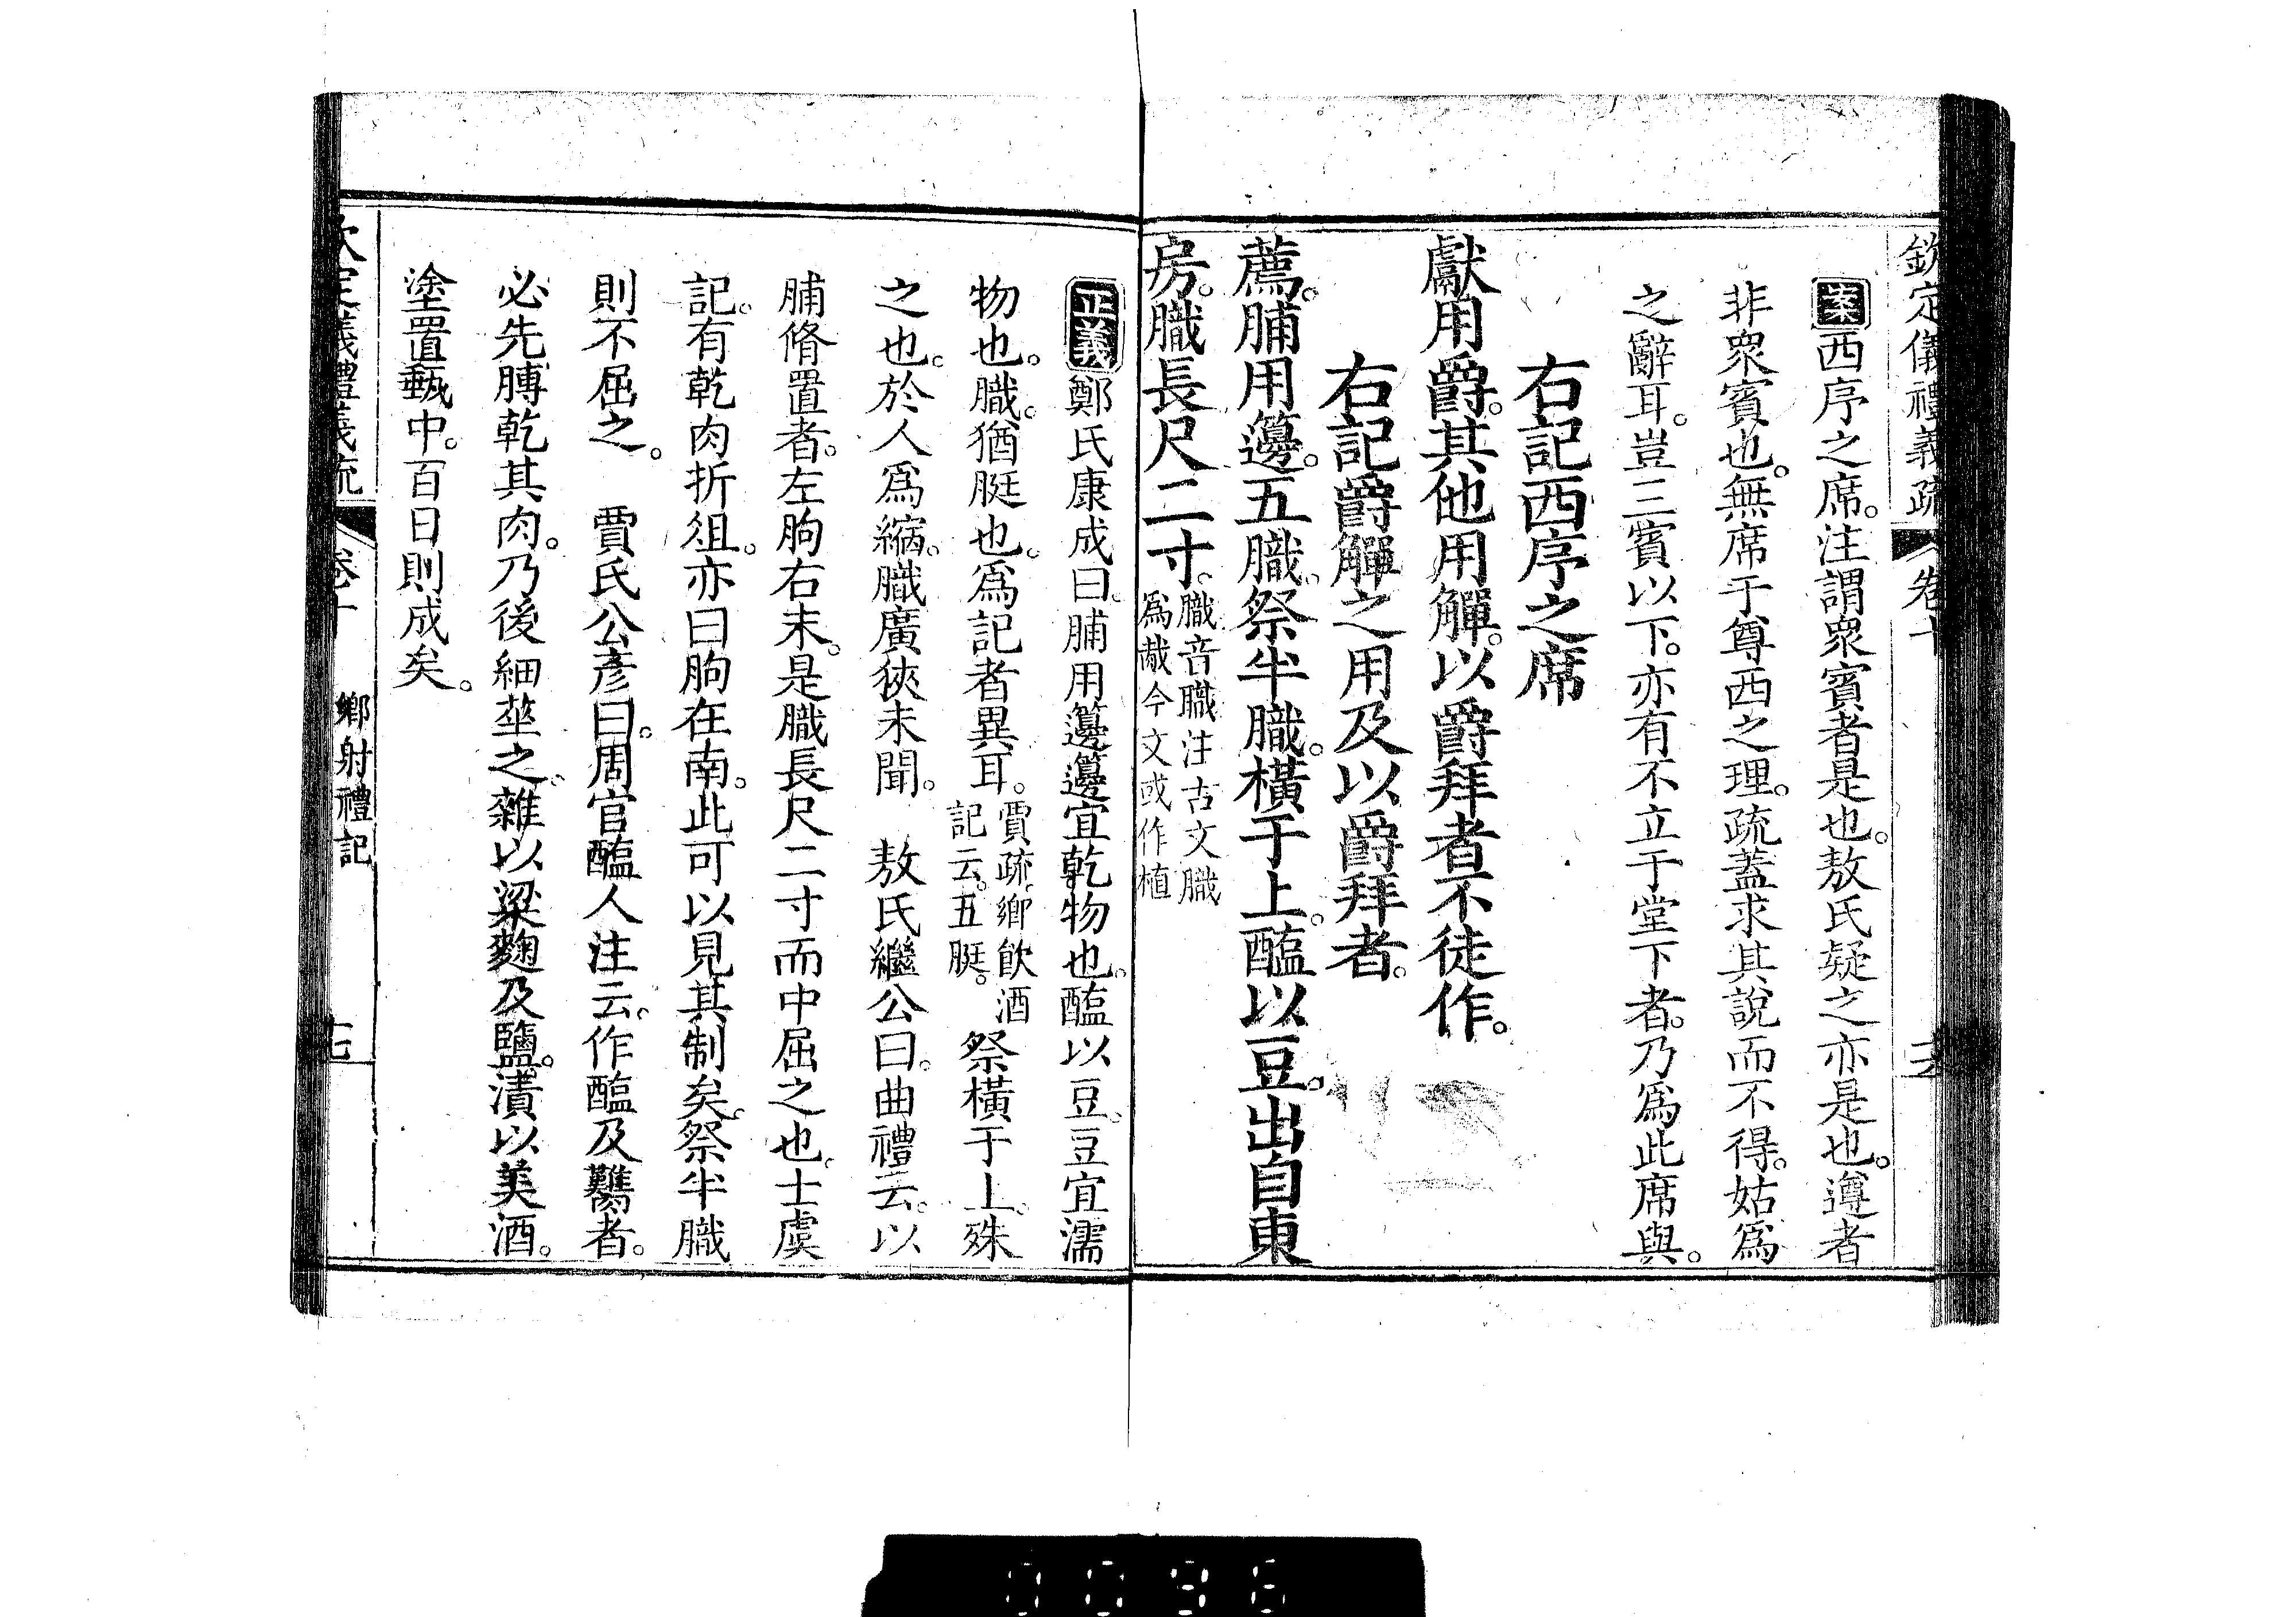 欽定儀禮義疏 卷十
案西序之席。注謂眾賓者是也。敖氏疑之亦是也。遵者
非眾賓也。無席于尊西之理。疏蓋求其說而不得。姑為
之辭耳。豈三賓以下。亦有不立于堂下者。乃為此席與。
右記西序之席
獻用爵。其他用觶。以爵拜者不徒作。
右記爵觶之用及以爵拜者。
薦。脯用籩。五膱。祭半膱。橫于上。醢以豆。出自東
房。膱長尺二寸。膱音職注古文膱
為胾今文或作植
正義鄭氏康成曰。脯用籩。籩宜乾物也。醢以豆。豆宜濡
物也。膱。猶脡也。為記者異耳。賈疏。鄉飲酒
記云。五脡。祭橫于上。殊
之也。於人為縮。膱廣狹未聞。 敖氏繼公曰。曲禮云。以
脯脩置者。左朐右末。是膱長尺二寸而中屈之也。士虞
記。有乾肉折俎。亦曰朐在南。此可以見其制矣。祭半膱
則不屈之。 賈氏公彥曰。周官醢人注云。作醢及臡者。
必先膊乾其肉。乃後細莝之。雜以粱麴及鹽。漬以美酒。
塗置甀中。百日則成矣。
鄉射禮記